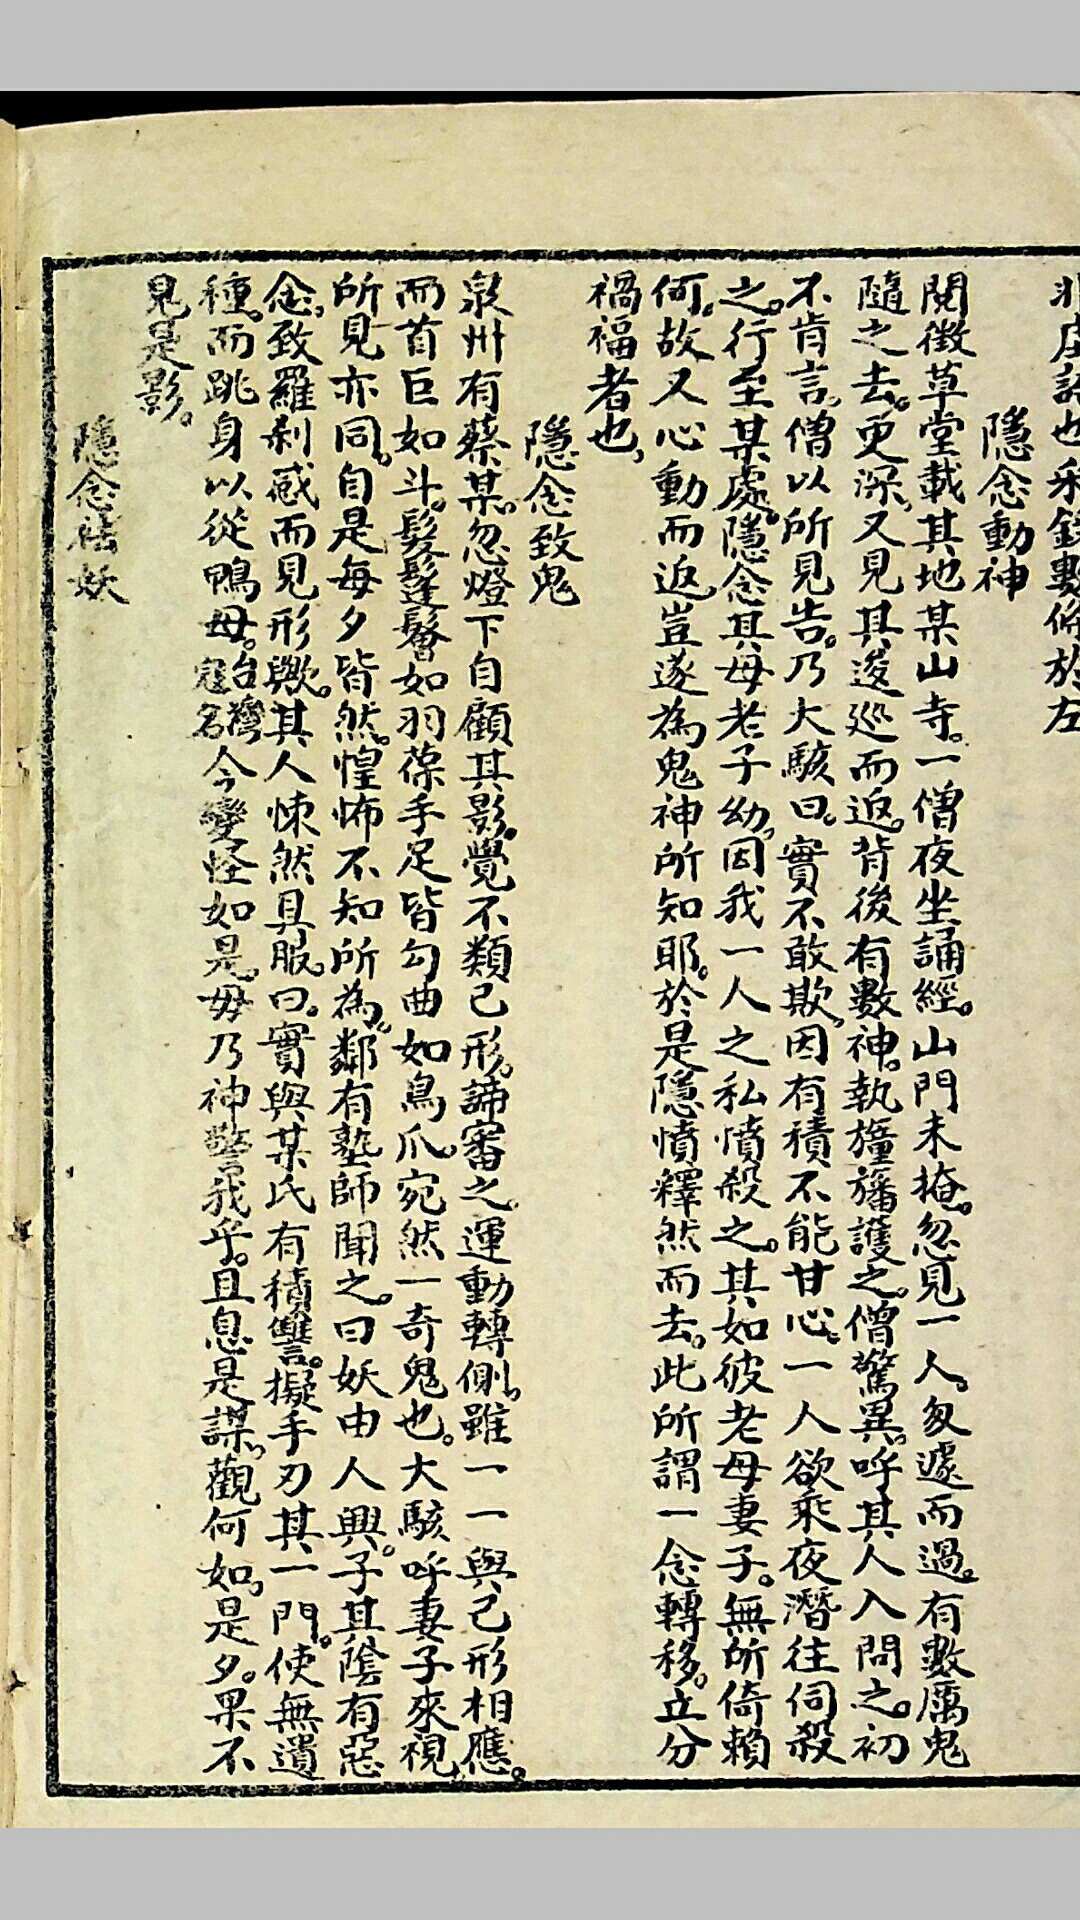 非虛語也采錄數條於左
隱念動神
閱微草堂載其地某山寺。一僧夜坐誦經。山門未掩。忽見一人。匆遽而過。有數厲鬼
隨之去。更深。又見其逡巡而返。背後有數神。執旛護之。僧驚異。呼其人入問之。初
不肯言。僧以所見告。乃大駭曰。實不敢欺。因有積不能甘心。一人欲乘夜潛往伺殺
之。行至某處。隱念其母老子幼。因我一人之私憤殺之。其如彼老母妻子。無所倚賴
何。故又心動而返豈遂為鬼神所知耶。於是隱憤釋然而去。此所謂一念轉移。立分
禍福者也。
隱念致鬼
泉州有蔡某。忽燈下自顧其影。覺不類己形。諦審之。運動轉側。雖一一與己形相應。
而首巨如斗。髮鬔鬙如羽葆手足皆勾曲如鳥爪。宛然一奇鬼也。大駭呼妻子來視。
所見亦同。自是每夕皆然。惶怖不知所為。鄰有塾師聞之。曰妖由人興。子其陰有惡
念。致羅剎感而見形歟。其人悚然具服。曰。實與某氏有積讐。擬手刃其一門。使無遺
種。而跳身以從鴨母。台灣寇名今變怪如是。毋乃神警我乎。且息是謀。觀何如。是夕。果不
見是影。
隱念祛妖